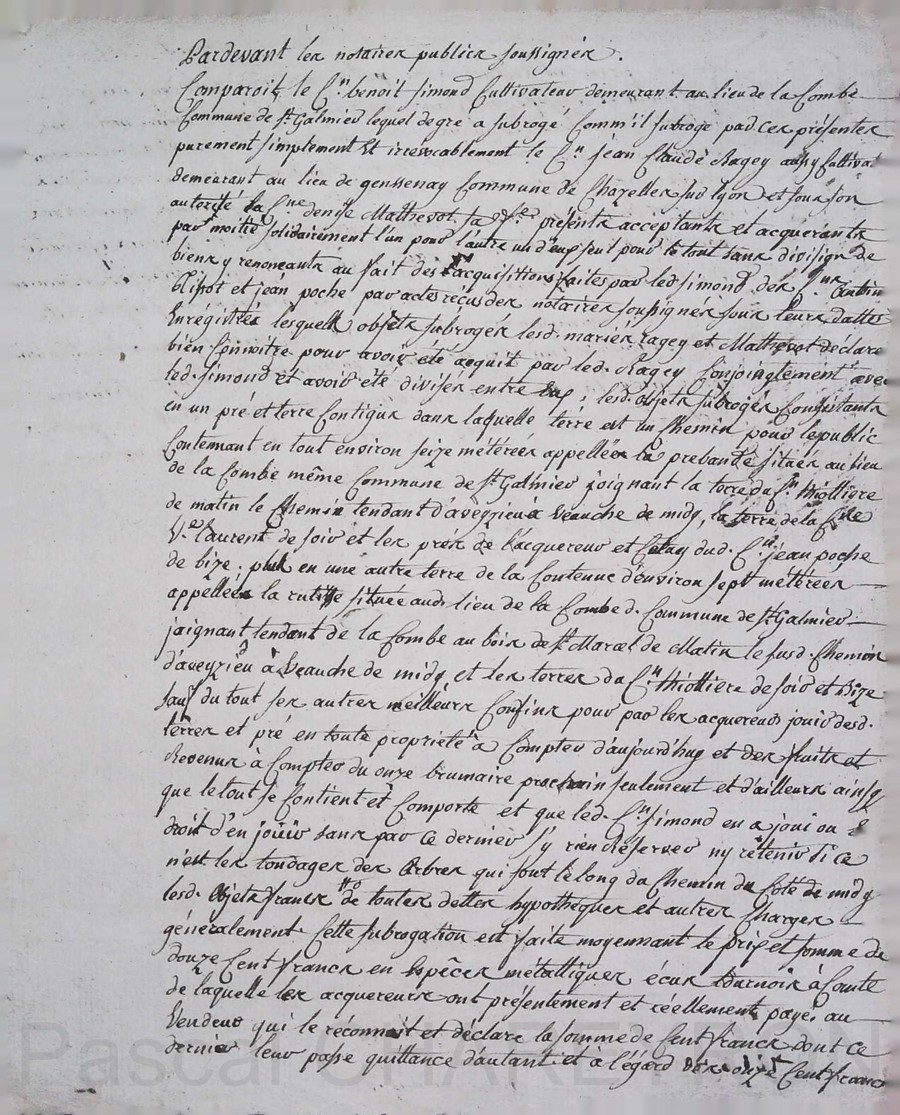 Pardevant les notaires publics soussignés.
Comparoit le C.n benoît simond Cultivateur demeurant au lieu de la Combe
Commune de St Galmier lequel de gré a subrogé Comm'il subroge par ces présentes
purement simplement et irrévocablement le C.n jean Claude Ragey aussy Cultiva
demeurant au lieu de genssenay Commune de Chazelles sur lyon et sous son
autorité la C.ne denise Mathevot sa f.e présents acceptants et acquerants
par moitié solidairement l'un pour l'autre un d'eux seul pour le tout sans division de
biens y renonçants au fait des acquisitions faites par led simond des C.ns
et jean poche par actes reçus des notaires soussignés sous leurs dattes
Enregistrés lesquels objets subrogés lesd. mariés ragey et Mathevot déclare
bien Connoitre pour avoir été acquit par led. Ragey Conjointement avec
led. simond et avoir été divisés entre eux ; lesd. objets subrogés Consistants
en un pré et terre Contigus dans laquelle terre est un Chemin pour le public
Contennant en tout environ seize métérées appellées la prebande situés au lieu
de la Combe même Commune de St Galmier joignant la terre du C.n thiolliere
de matin le Chemin tendant d'aveyzieu à Veauche de midy, la terre de la C.ne
V.e laurent de soir et les prés de l'acquereur et Celuy dud. C.n jean poche
de bize ; plus en une autre terre de la Contenue d'environ sept métérées
appellée la situee aud. lieu de la Combe d. Commune de St Galmier
jaignant tendant de la Combe au bois de St Marcel de Matin le susd. Chemin
d'aveyzieu à Veauche de midy et les terres du C.n thiolliere de soir et Bize
sauf du tout ses autres meilleurs Confins pour par les acquereurs jouir desd.
terres et pré en toute propriété à Compter d'aujourd'huy et des fruits et
Revenus à Compter du onze brumaire prochain seulement et d'ailleurs ainsy
que le tout se Contient et Comporte et que led. C.n simond en a joui ou
droit d'en jouir sans par Ce dernier s'y rien Réserver ny retenir si ce
n'est les tondages des Arbres qui sont le long du Chemin du Coté de midy
lesd. Objets francs de toutes dettes hypothèques et autres Charges
généralement. Cette subrogation est faite moyennant le prix et somme de
douze Cent francs en Espèces métalliques écus tournois à Comte
de laquelle les acquereurs ont présentement et réellement payé au
Vendeur qui le reconnait et déclare la somme de Cent francs dont Ce
dernier leur passe quittance d'autant et a l'égard des onze Cent francs